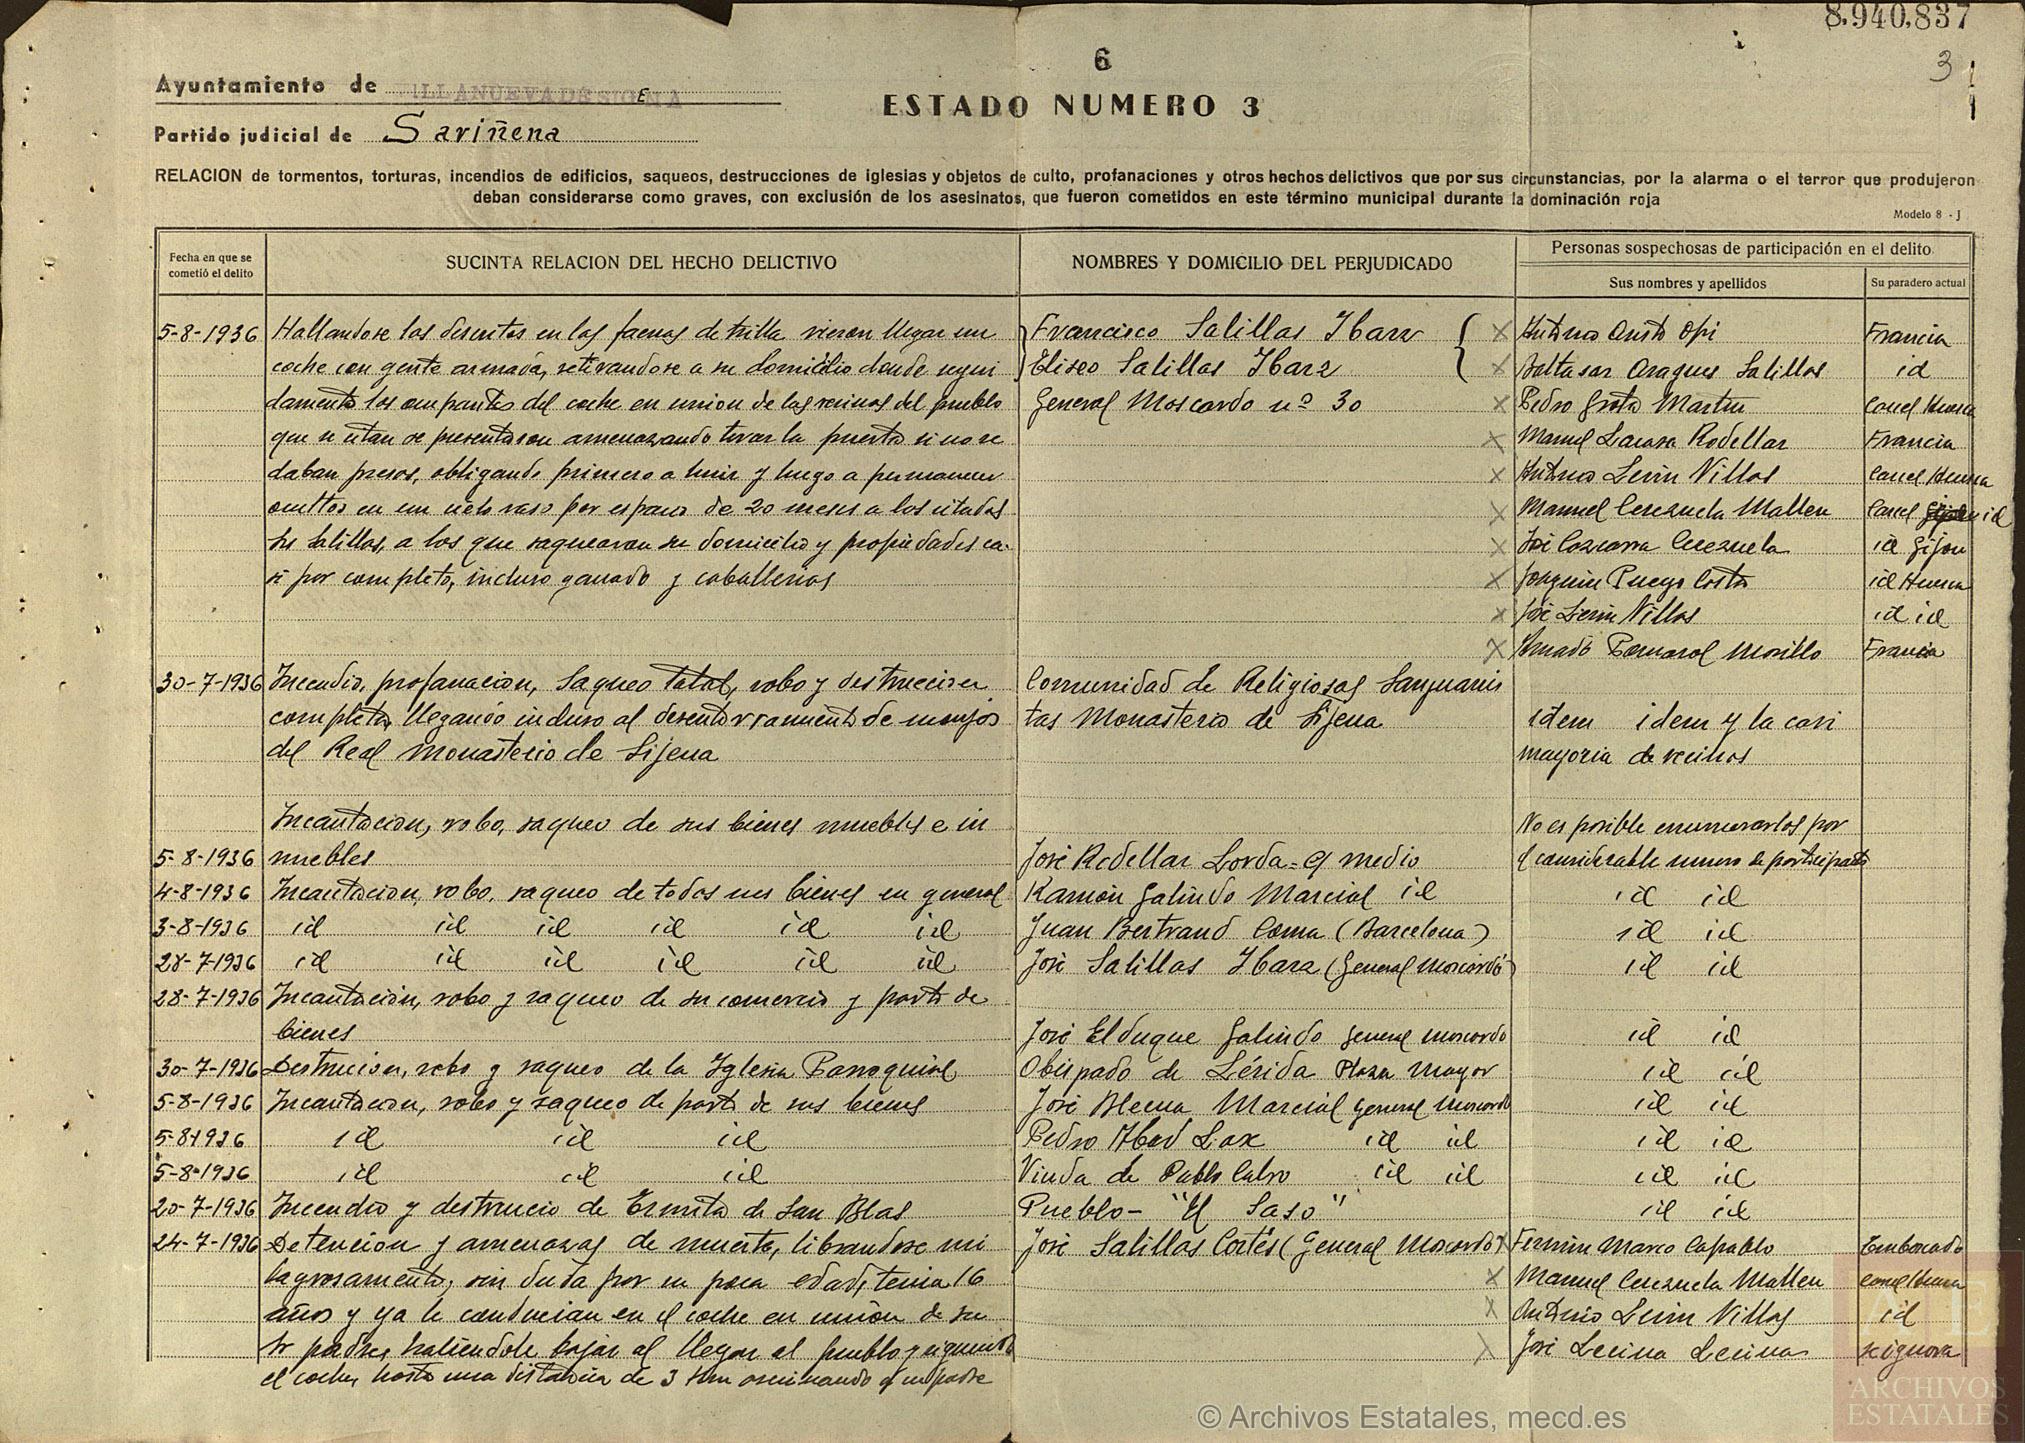 8.940,837
3
6
Ayuntamiento de VILLANUEVA DE SIGENA
ESTADO NUMERO 3
Partido judicial de Sariñena
RELACION de tormentos, torturas, incendios de edificios, saqueos, destrucciones de iglesias y objetos de culto, profanaciones y otros hechos delictivos que por sus circunstancias, por la alarma o el terror que produjeron
deban considerarse como graves, con exclusión de los asesinatos, que fueron cometidos en este término municipal durante la dominación roja
Modelo 8 - J
Fecha en que se cometió el delito
SUCINTA RELACION DEL HECHO DELICTIVO
NOMBRES Y DOMICILIO DEL PERJUDICADO
Personas sospechosas de participación en el delito
Sus nombres y apellidos
Su paradero actual
5-8-1936 Hallandose los descritos en las faenas de trilla vieron llegar un Francisco Salillas Ibarz Francia
coche con gente armada, retirandose a su domicilio donde segui Eliseo Salillas Ibarz Baltasar Araques Salillas id
damente los ocupantes del coche en union de los vecinos del pueblo General Moscardo nº 30 Pedro Martin Carcel Huesca
que se citan se presentaron amenazando tirar la puerta si no se Manuel Lacasa Rodellar Francia
daban presos, obligando primero a huir y luego a permanecer Antonio Lerin Villas Carcel Huesca
ocultos en un cielo raso por espacio de 20 meses a los citados Manuel Cerezuela Mallen Carcel id
Salillas, a los que saquearon su domicilio y propiedades ca- José Cerezuela id Gijon
si por completo, incluso ganado y caballerias Joaquin Pueyo Costa id Huesca
José Lerin Villas id id
Amado Morillo Francia
30-7-1936 Incendio, profanacion, saqueo total, robo y destruccion Comunidad de Religiosas Sanjuanis
completa, llegando incluso al desenterramiento de monjas tas Monasterio de Sijena idem idem y la casi
del Real Monasterio de Sijena mayoria de vecinos
Incautacion, robo, saqueo de sus bienes muebles e in No es posible enumerarlos por
5-8-1936 muebles José Rodellar Lorda = el medio el considerable numero de participantes
4-8-1936 Incautacion, robo, saqueo de todos sus bienes en general Ramón Galindo Marcial id id id
3-8-1936 id id id id id id Juan Bertrand Coma (Barcelona) id id
28-7-1936 id id id id id id José Salillas Ibarz (General Moscardó) id id
28-7-1936 Incautación, robo y saqueo de su comercio y parte de
bienes José Elduque Galindo General Moscardo id id
30-7-1936 Destruccion, robo y saqueo de la Iglesia Parroquial Obispado de Lérida Plaza Mayor id id
5-8-1936 Incautacion, robo y saqueo de parte de sus bienes José Blecua Marcial General Moscardo id id
5-8-1936 id id id Pedro Abad Lax id id id id
5-8-1936 id id id Viuda de Pablo Calvo id id id id
20-7-1936 Incendio y destruccio de Ermita de San Blas Pueblo - "El Saso" id id
24-7-1936 Detencion y amenazas de muerte, librandose mi José Salillas Cortés (General Moscardo) Fermin Marco Capablo Emboscado
lagrosamente, sin duda por su poca edad, tenia 16 Manuel Cerezuela Mallen Carcel Huesca
años y ya le conducian en el coche en unión de su Antonio Lerin Villas id
padre, haciendole bajar al llegar al pueblo y siguiendo José Lecina Lecina se ignora
el coche, hasta una distancia de 3 Km asesinando a su padre
© Archivos Estatales, mecd.es
ARCHIVOS
ESTATALES